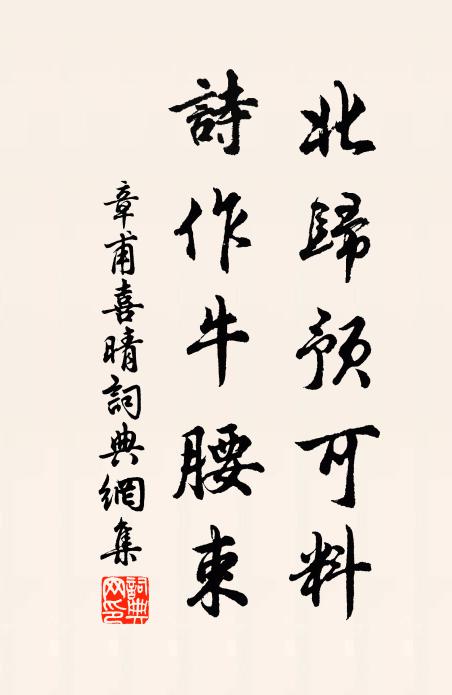 北歸預可料
詩作牛腰束
章甫喜晴詞典網集
詞典網印